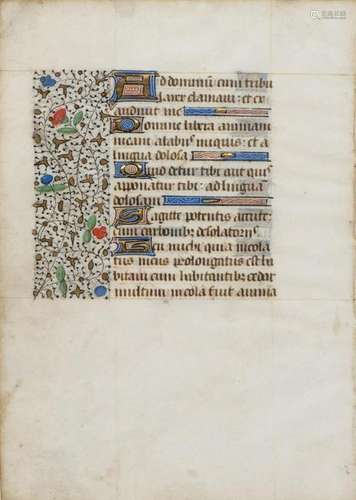 Ad dominum cum tribu
larer clamavi: et ex
audivit me
Domine libera animam
meam a labiis iniquis: et a
lingua dolosa
Quid detur tibi aut quid
apponatur tibi: ad lingua
dolosam
Sagitte potentis acute:
cum carbonib; desolatoriis
Heu michi quia incola
tus meus prolongatus est ha
bitavi cum habitantib; cedar
multum incola fuit anima